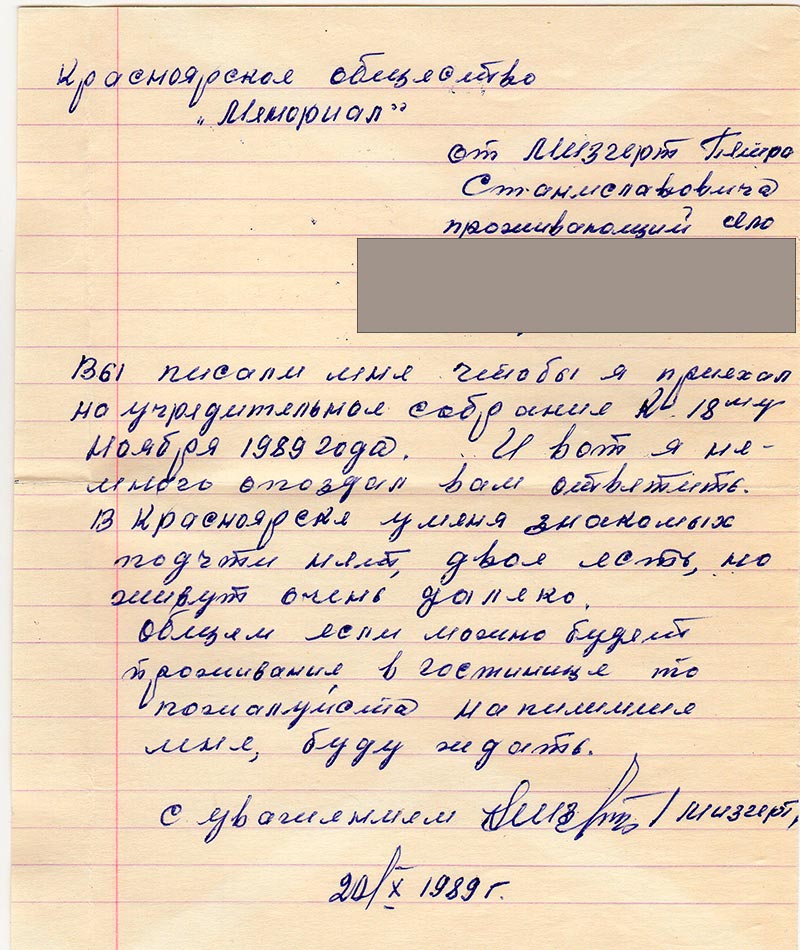 Красноярское общество
„Мемориал"
от Мизгерт Петра
Станиславовича
проживающий село
Вы писали мне чтобы я приехал
на учредительное собрание к 18му
ноября 1989 года. И вот я не-
много опоздал вам ответить.
В Красноярске у меня знакомых
подчти нет, двое есть, но
живут очень далеко.
Общем если можно будет
проживание в гостинице то
пожалуйста напишите
мне, буду ждать.
с уважением Мизгерт / Мизгерт,
20/X 1989 г.